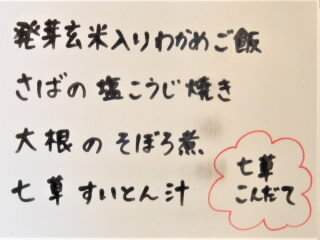 発芽玄米入りわかめご飯
さばの塩こうじ焼き
大根のそぼろ煮
七草すいとん汁
七草
こんだて